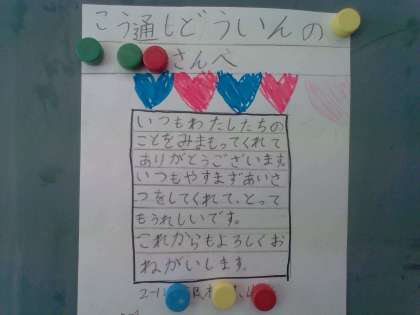 こう通しどういんの
さんへ
いつもわたしたちの
ことをみまもってくれて
ありがとうございます。
いつもやすまずあいさ
つをしてくれて、とって
もうれしいです。
これからもよろしくお
ねがいします。
2-1